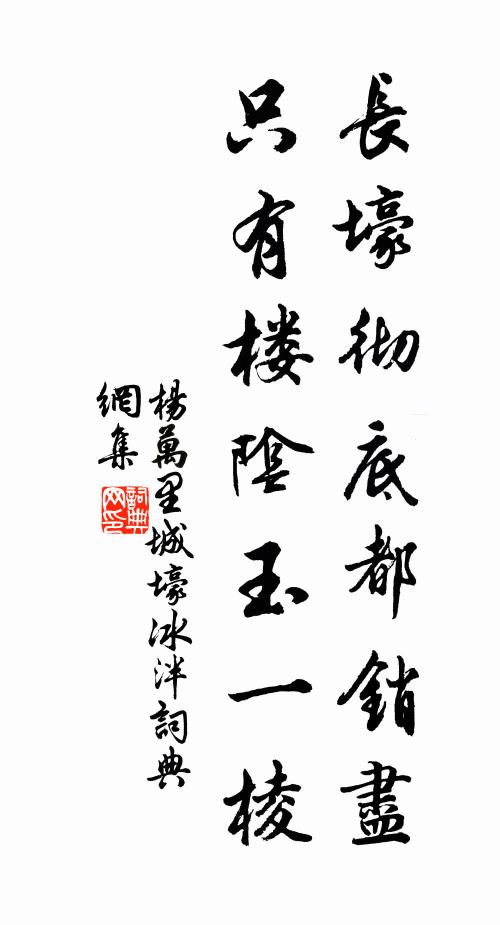 長壕彻底都銷盡
只有楼陰玉一棱
楊萬里城壕冰泮詞典
網集
詞典网印